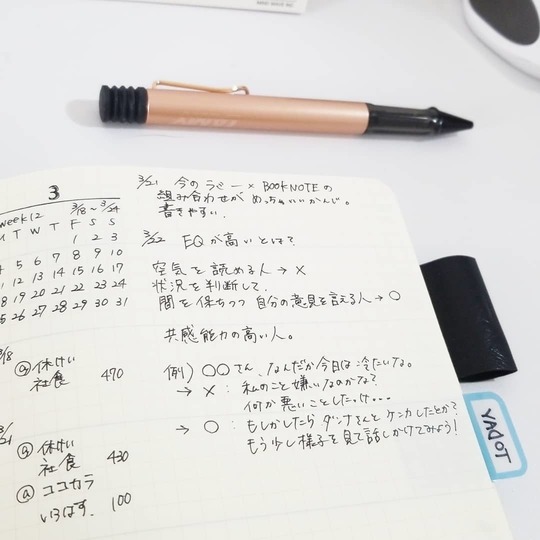 3
week12 3/18~3/24
M T W T F S S
1 2 3
4 5 6 7 8 9 10
11 12 13 14 15 16 17
18 19 20 21 22 23 24
25 26 27 28 29 30 31
3/18
ⓐ 休けい
社食 470
3/21
ⓐ 休けい
社食 430
ⓐ ココカラ
いろはす. 100
3/21 今のラミー × BOOKNOTEの
組み合わせが めっちゃいいかんじ。
書きやすい.
3/22 EQが高いとは?
空気を読める人 → ×
状況を判断して、
間を保ちつつ自分の意見を言える人 → ○
共感能力の高い人。
例) ○○さん、なんだか今日は冷たいな。
→ × : 私のこと嫌いなのかな?
何か悪いことしたっけ…
→ ○ : もしかしたら ダンナさんと ケンカしたとか?
もう少し様子を見て話しかけてみよう!
TODAY
LAMY